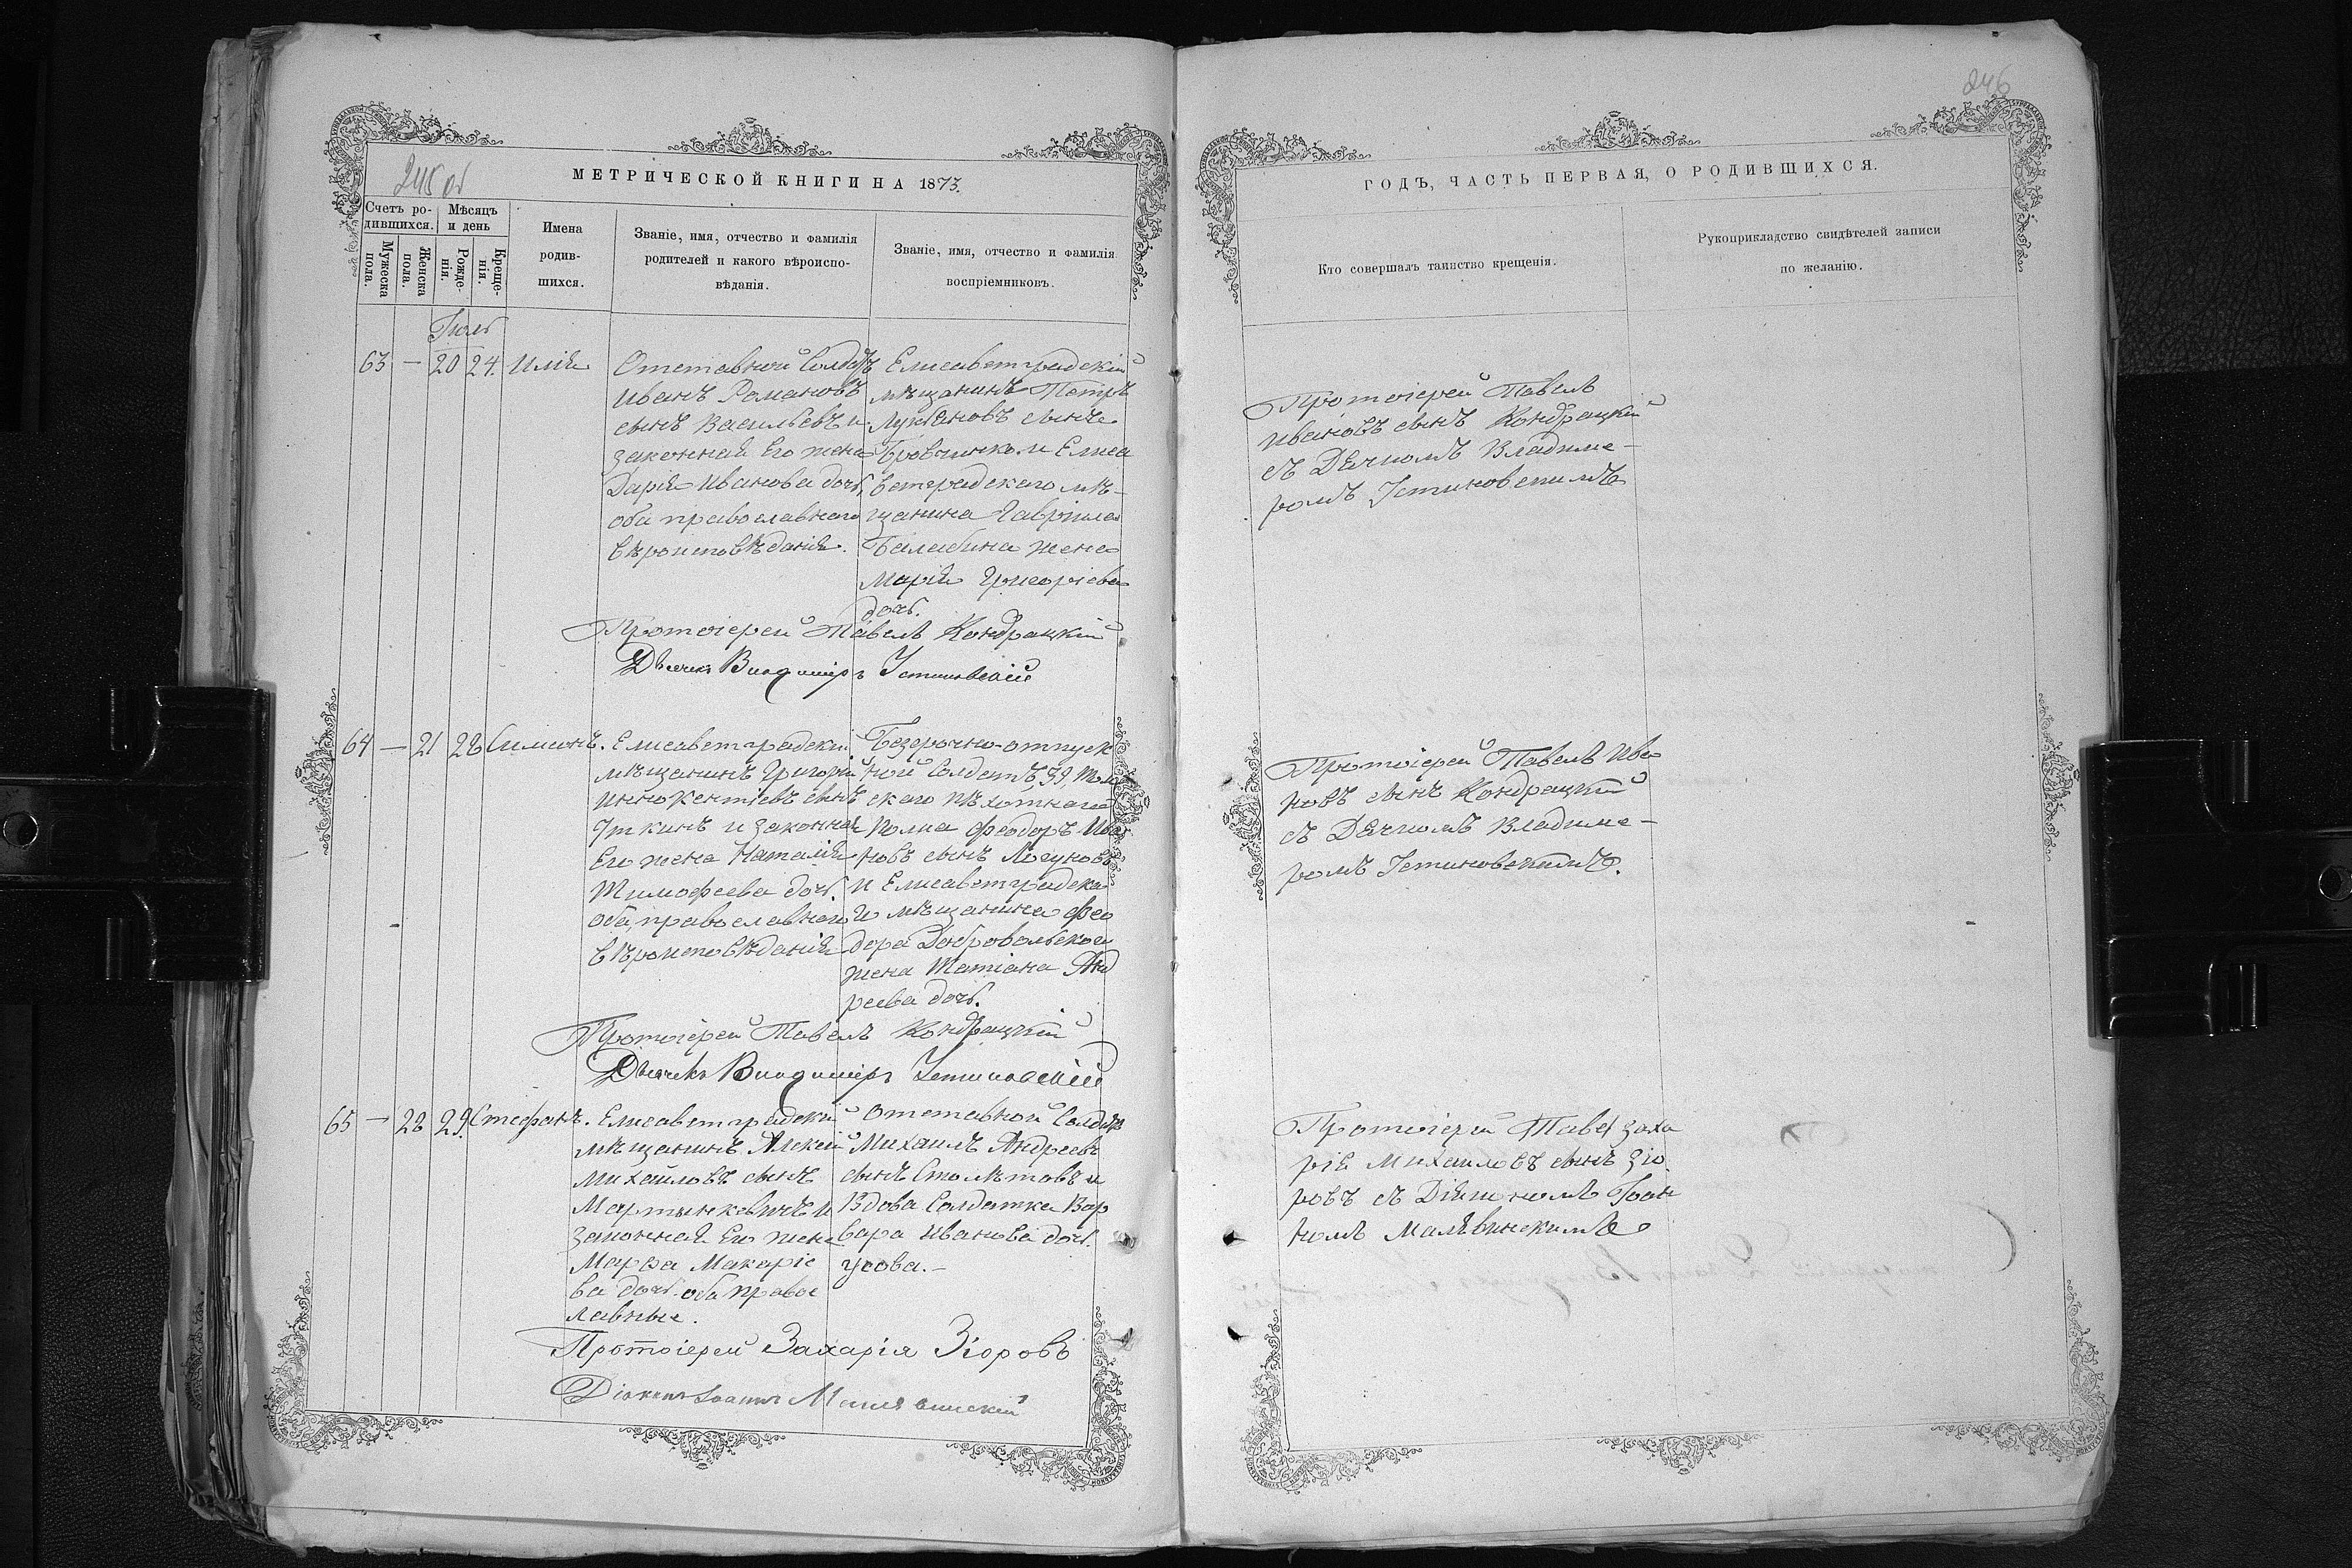 246
245 об
МЕТРИЧЕСКОЙ КНИГИ НА 1873.
Счетъ ро-
дившихся.
Мужеска
пола.
Женска
пола.
Мѣсяцъ
и день
Рожде-
нія.
Креще-
нія.
Имена
родив-
шихся.
Званіе, имя, отчество и фамилія
родителей и какого вѣроиспо-
вѣданія.
Званіе, имя, отчество и фамилія
воспріемниковъ.
Іюль
63 — 20 24. Илія
Отставной Солдатъ
Иванъ Романовъ
сынъ Васильевъ и
законная Его жена
Дарія Иванова дочь,
оба православнаго
вѣроисповѣданія.
Елисаветградскій
мѣщанинъ Петръ
Лукьяновъ сынъ
и Елиса
ветградскаго мѣ-
щанина Гавріила
Балабина жена
Марія Григоріева
дочь.
Протоіерей Павелъ Кондрацкій
Дьячекъ Владиміръ Устиновскій
64 — 21 28 Симеонъ.
Елисаветградскій
мѣщанинъ Григорій
Иннокентіевъ сынъ
Уткинъ и законная
Его жена Наталія
Тимофеева дочь.
оба православнаго
вѣроисповѣданія
Безсрочно-отпуск
ной Солдатъ, 39, Том
скаго пѣхотнаго
Полка Феодоръ Ива
новъ сынъ Логуновъ
и Елисаветградска
го мѣщанина Фео
дора Добровольскаго
жена Татіана Анд
реева дочь.
Протоіерей Павелъ Кондрацкій
Дьячекъ Владиміръ Устиновскій
65 — 28 29. Стефанъ.
Елисаветградскій
мѣщанинъ Алексій
Михайловъ сынъ
Мартынкевичъ и
законная Его жена
Марѳа Макаріе
ва дочь. оба право
лавные.
Отставной Солдатъ
Михаилъ Андреевъ
сынъ Столѣтовъ и
Вдова Солдатка Вар
вара Иванова дочь.
Усова.—
Протоіерей Захарія Зіоровъ
Діаконъ Іоаннъ Малявинскій
ГОДЪ, ЧАСТЬ ПЕРВАЯ, О РОДИВШИХСЯ.
Кто совершалъ таинство крещенія.
Рукоприкладство свидѣтелей записи
по желанію.
Протоіерей Павелъ
Ивановъ сынъ Кондрацкій
съ Дьячкомъ Владими-
ромъ Устиновскимъ
Протоіерей Павелъ Ива
новъ сынъ Кондрацкій
съ Дьячкомъ Владими-
ромъ Устиновскимъ.
Протоіерей Заха
рія Михаиловъ сынъ Зіо
ровъ съ Діякономъ Іоан
номъ Малявинскимъ